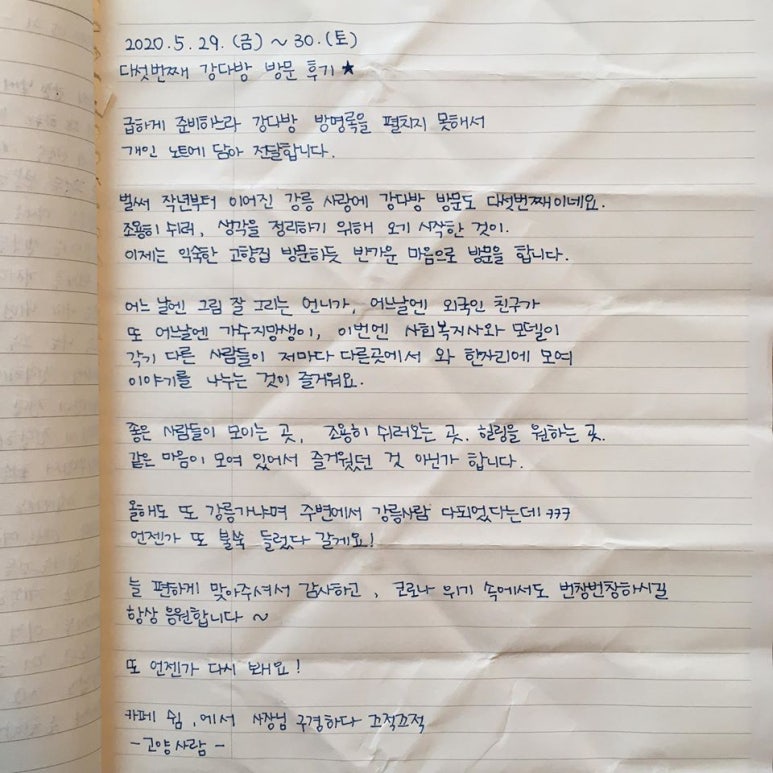 2020.5.29.(금) ~ 30.(토)
다섯번째 강다방 방문 후기 ★
급하게 준비하느라 강다방 방명록을 펼치지 못해서
개인 노트에 담아 전달합니다.
벌써 작년부터 이어진 강릉 사랑에 강다방 방문도 다섯번째이네요.
조용히 쉬러, 생각을 정리하기 위해 오기 시작한 것이.
이제는 익숙한 고향집 방문하듯 반가운 마음으로 방문을 합니다.
어느 날엔 그림 잘 그리는 언니가, 어느날엔 외국인 친구가
또 어느날엔 가수지망생이, 이번엔 사회복지사와 모델이
각기 다른 사람들이 저마다 다른곳에서 와 한자리에 모여
이야기를 나누는 것이 즐거워요.
좋은 사람들이 모이는 곳, 조용히 쉬러오는 곳. 힐링을 원하는 곳.
같은 마음이 모여 있어서 즐거웠던 것 아닌가 합니다.
올해도 또 강릉가냐며 주변에서 강릉사람 다되었다는데! ㅋㅋㅋ
언젠가 또 불쑥 들렀다 갈게요!
늘 편하게 맞아주셔서 감사하고, 코로나 위기 속에서도 번창번창하시길
항상 응원합니다 ~
또 언젠가 다시 봬요!
카페 쉼, 에서 사장님 구경하다 끄적끄적
- 고양사람 -